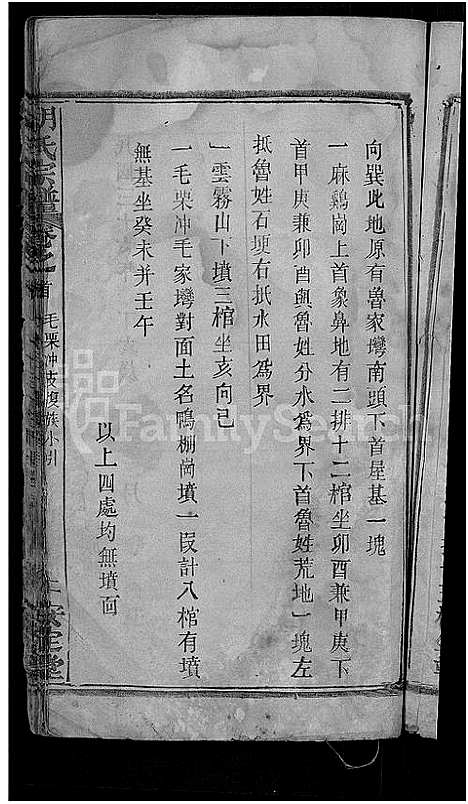 向巽此地原有魯家塆南頭下首屋基一塊
一麻鷄崗上首象鼻地有二排十二棺坐卯酉兼甲庚下
首甲庚兼卯酉與魯姓分水爲界下首魯姓荒地一塊左
抵魯姓石埂右抵水田爲界
一雲霧山下墳三棺坐亥向巳
一毛栗冲毛家塆對面土名鴨棚崗墳一段計八棺有墳
無基坐癸未并壬午
以上四處均無墳面
胡氏宗譜
卷之首
毛栗冲支復族小引
FamilySearch